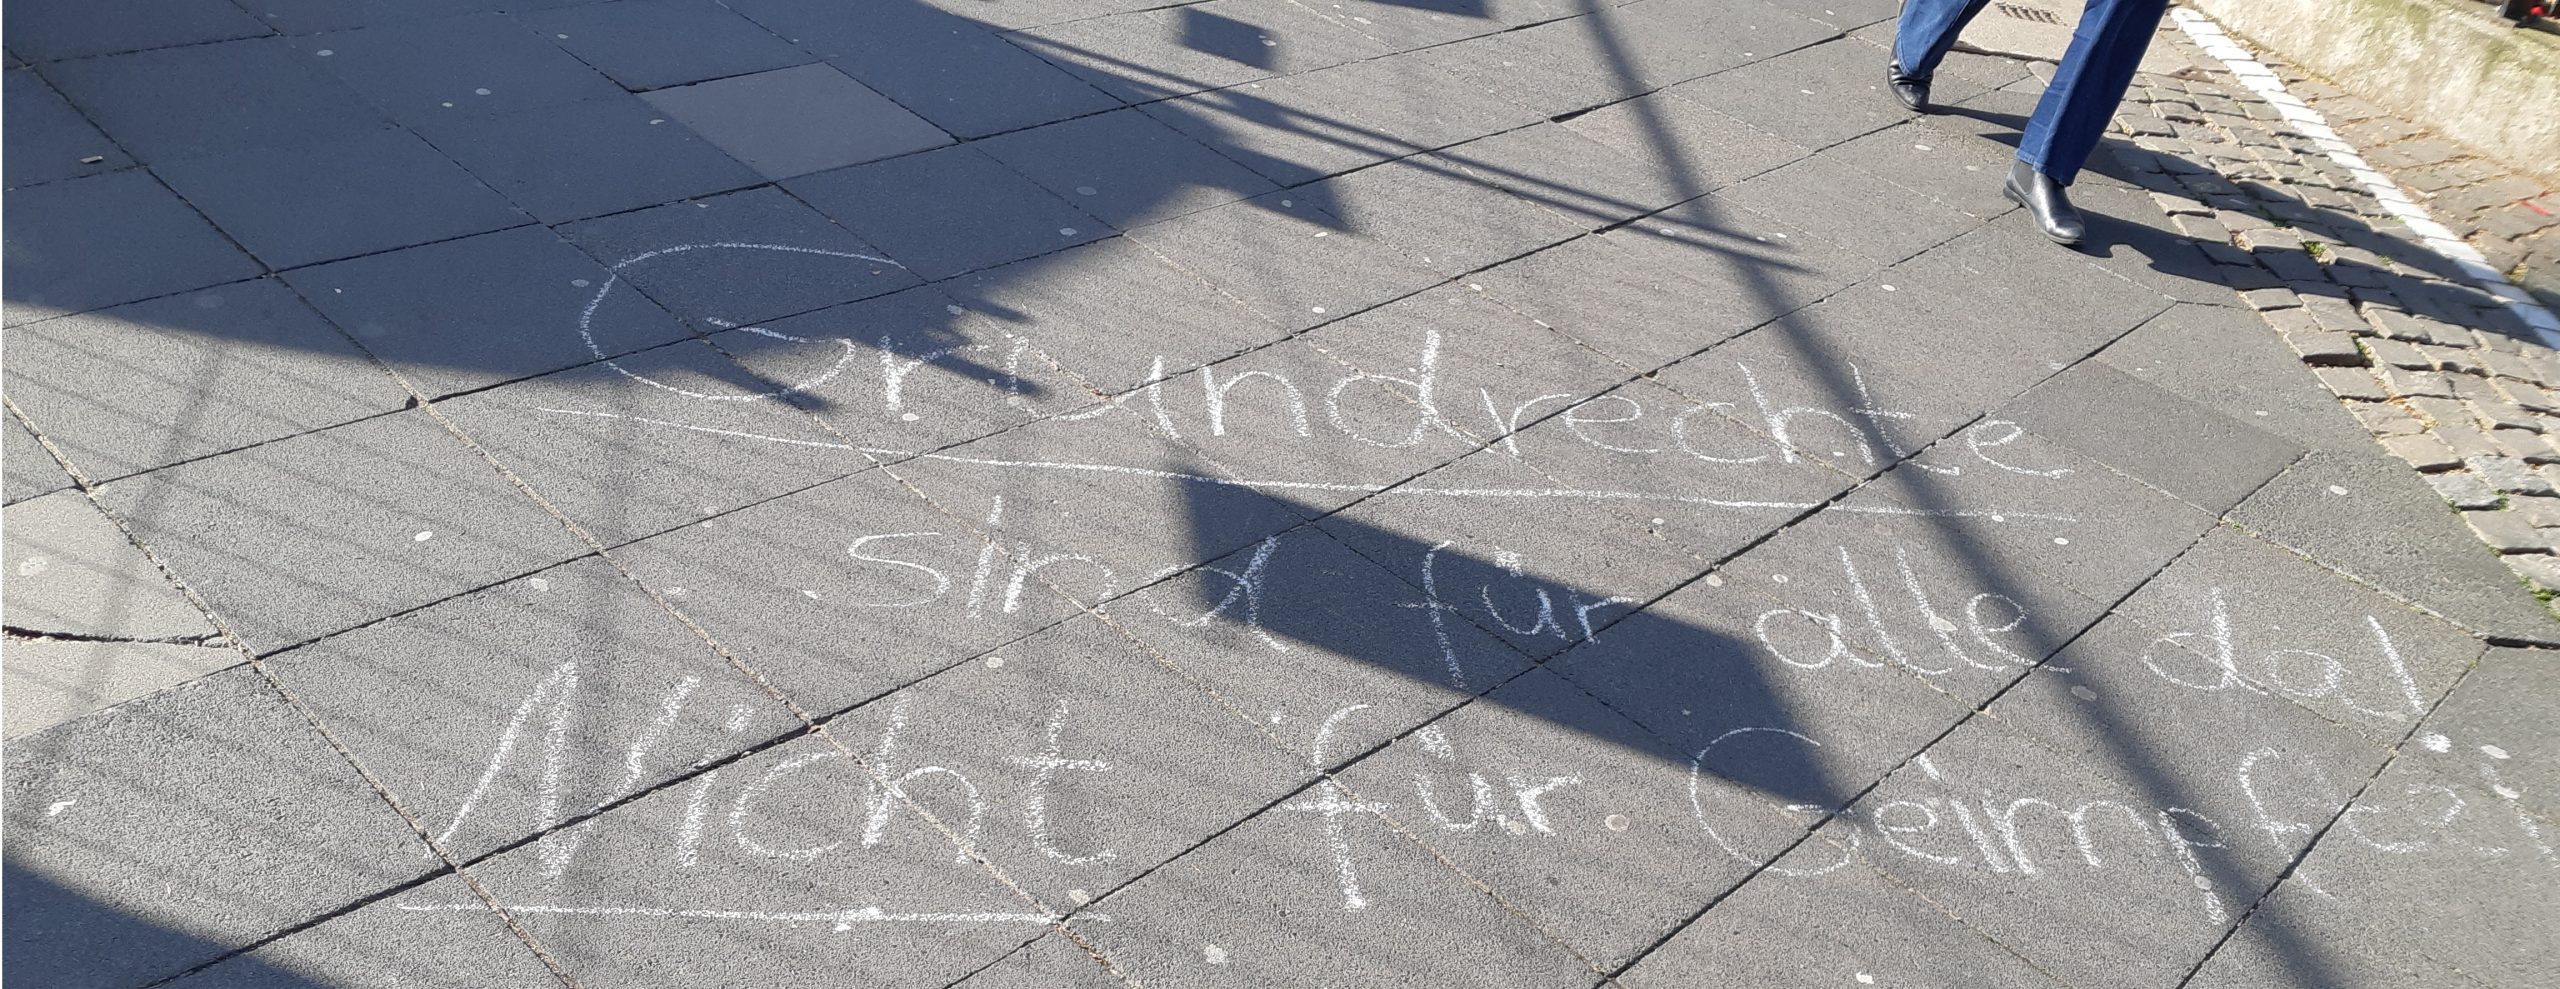 Grundrechte
sind für alle da!
Nicht für Geimpfte